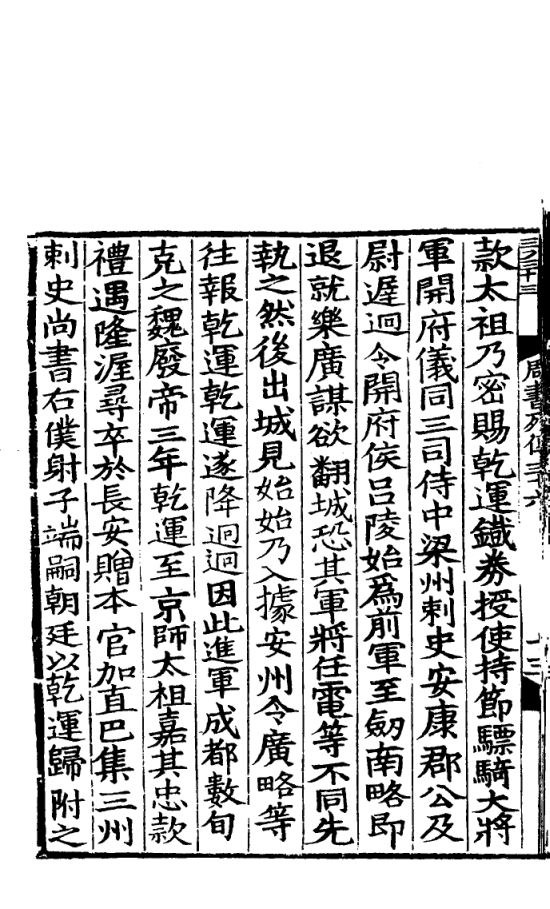 款太祖乃密賜乾運鐵券授使持節驃騎大將
軍開府儀同三司侍中梁州刺史安康郡公及
尉遲迥令開府侯呂陵始爲前軍至劔南略即
退就樂廣謀欲翻城恐其軍將任電等不同先
執之然後出城見始始乃入據安州令廣略等
往報乾運乾運遂降迥迥因此進軍成都數旬
克之魏廢帝三年乾運至京師太祖嘉其忠款
禮遇隆渥尋卒於長安贈本官加直巴集三州
刺史尚書右僕射子端嗣朝廷以乾運歸附之